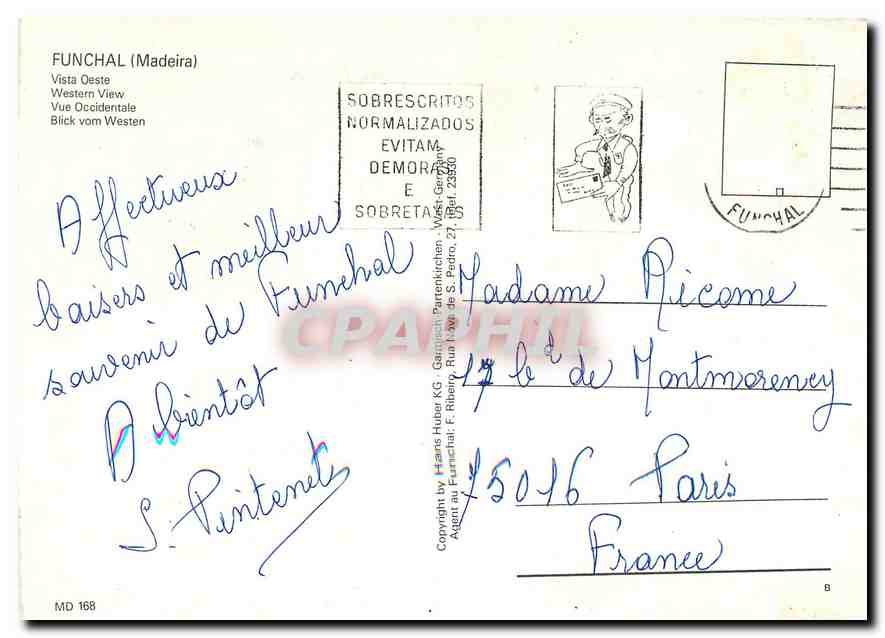 FUNCHAL (Madeira)
Vista Oeste
Western View
Vue Occidentale
Blick vom Westen
SOBRESCRITOS
NORMALIZADOS
EVITAM
DEMORAS
E
SOBRETAXAS
FUNCHAL
Affectueux
baisers et meilleur
souvenir de Funchal
A bientôt
S. Pintenet
Copyright by Hans Huber KG · Garmisch-Partenkirchen · West-Germany
Agent au Funchal: F. Ribeiro, Rua Nova de S. Pedro, 27, Telef. 23930
CPAPHIL
Madame Ricome
17 bd de Montmorency
75016 Paris
France
MD 168
B